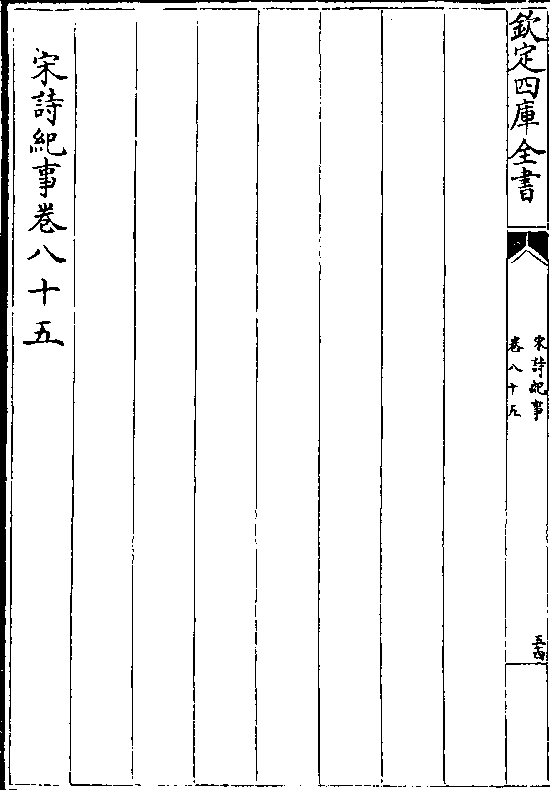 欽定四庫全書
宋詩紀事
卷八十五
五十四
宋詩紀事卷八十五